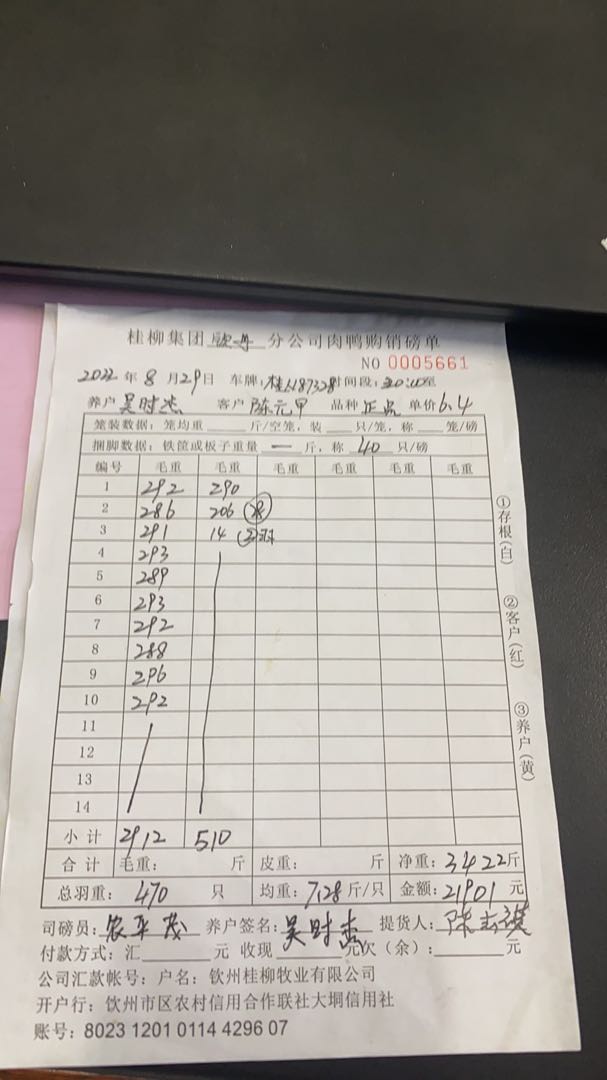 桂柳集团 分公司肉鸭购销磅单
NO 0005661
2022 年 8 月 29 日 车牌: 时间段:
养户 吴时杰 客户 陈元甲 品种 正品 单价 6.4
笼装数据: 笼均重 斤/空笼, 装 只/笼, 称 笼/磅
捆脚数据: 铁筐或板子重量 一 斤, 称 40 只/磅
编号 毛重 毛重 毛重 毛重 毛重 毛重
1 292 290
2 286 206
3 291 14
4 293
5 289
6 293
7 292
8 288
9 296
10 292
11
12
13
14
小计 2912 510
合计 毛重: 斤 皮重: 斤 净重: 3422 斤
总羽重: 470 只 均重: 7.28 斤/只 金额: 21901 元
司磅员: 农平茂 养户签名: 吴时杰 提货人: 陈
付款方式: 汇 元 收现 元欠(余): 元
公司汇款帐号: 户名: 钦州桂柳牧业有限公司
开户行: 钦州市区农村信用合作联社大垌信用社
账号: 8023 1201 0114 4296 07
①存根(白)
②客户(红)
③养户(黄)